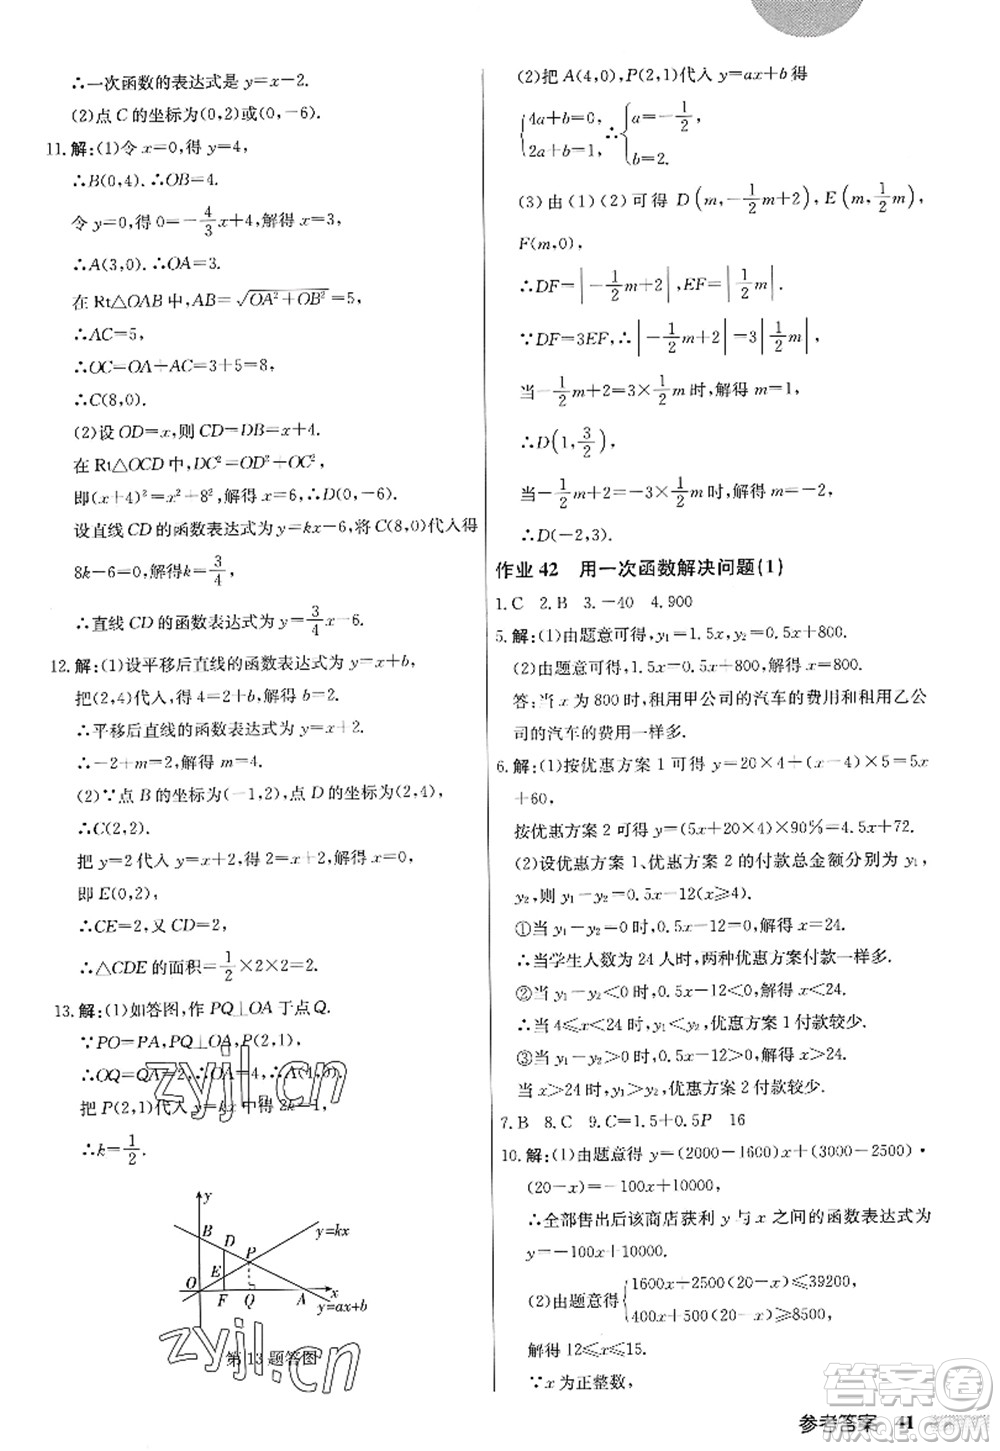 ∴一次函数的表达式是 y=x−2.
(2)点 C 的坐标为(0,2)或(0,−6).
11.解:(1)令 x=0,得 y=4,
∴B(0,4).∴OB=4.
令 y=0,得 0=−4/3x+4,解得 x=3,
∴A(3,0).∴OA=3.
在 Rt△OAB 中,AB=√(OA²+OB²)=5,
∴AC=5,
∴OC=OA+AC=3+5=8,
∴C(8,0).
(2)设 OD=x,则 CD=DB=x+4.
在 Rt△OCD 中,DC²=OD²+OC²,
即(x+4)²=x²+8²,解得 x=6,∴D(0,−6).
设直线 CD 的函数表达式为 y=kx−6,将 C(8,0)代入得
8k−6=0,解得 k=3/4,
∴直线 CD 的函数表达式为 y=3/4x−6.
12.解:(1)设平移后直线的函数表达式为 y=x+b,
把(2,4)代入,得 4=2+b,解得 b=2.
∴平移后直线的函数表达式为 y=x+2.
∴−2+m=2,解得 m=4.
(2)∵点 B 的坐标为(−1,2),点 D 的坐标为(4,2),
∴C(2,2).
把 y=2 代入 y=x+2,得 x=0,
即 E(0,2),
∴CE=2,又 CD=2,
∴△CDE 的面积=1/2×2×2=2.
13.解:(1)如答图,作 PQ⊥OA 于点 Q.
∵PO=PA,PQ⊥OA,P(2,1),
∴OQ=QA=2,∴OA=4,∴A(4,0).
把 P(2,1)代入 y=kx 中得 2k=1,
∴k=1/2.
y
B
D
P
y=kx
E
O
F
Q
A
x
y=ax+b
第 13 题答图
(2)把 A(4,0),P(2,1)代入 y=ax+b 得
{4a+b=0, 2a+b=1, ∴{a=−1/2, b=2.
(3)由(1)(2)可得 D(m,−1/2m+2),E(m,1/2m),
F(m,0),
∴DF=|−1/2m+2|,EF=|1/2m|.
∵DF=3EF,∴|−1/2m+2|=3|1/2m|,
当−1/2m+2=3×1/2m时,解得 m=1,
∴D(1,3/2);
当−1/2m+2=−3×1/2m时,解得 m=−2,
∴D(−2,3).
作业 42 用一次函数解决问题(1)
1.C 2.B 3.−40 4.900
5.解:(1)由题意可得,y₁=1.5x,y₂=0.5x+800.
(2)由题意可得,1.5x=0.5x+800,解得 x=800.
答:当 x 为 800 时,租用甲公司的汽车的费用和租用乙公
司的汽车的费用一样多.
6.解:(1)按优惠方案 1 可得 y=20×4+(x−4)×5=5x
+60,
按优惠方案 2 可得 y=(5x+20×4)×90%=4.5x+72.
(2)设优惠方案 1、优惠方案 2 的付款总金额分别为 y₁、
y₂,则 y₁−y₂=0.5x−12(x≥4).
①当 y₁−y₂=0 时,0.5x−12=0,解得 x=24.
∴当学生人数为 24 人时,两种优惠方案付款一样多.
②当 y₁−y₂<0 时,0.5x−12<0,解得 x<24.
∴当 4≤x<24 时,y₁<y₂,优惠方案 1 付款较少.
③当 y₁−y₂>0 时,0.5x−12>0,解得 x>24.
∴当 x>24 时,y₁>y₂,优惠方案 2 付款较少.
7.B 8.C 9.C=1.5+0.5P 16
10.解:(1)由题意得 y=(2000−1600)x+(3000−2500)·
(20−x)=−100x+10000,
∴全部售出后该商店获利 y 与 x 之间的函数表达式为
y=−100x+10000.
(2)由题意得{1600x+2500(20−x)≤39200, 400x+500(20−x)≥8500,
解得 12≤x≤15.
∵x 为正整数,
参考答案 41
zyjl.cn
zyjl.cn
答案圈